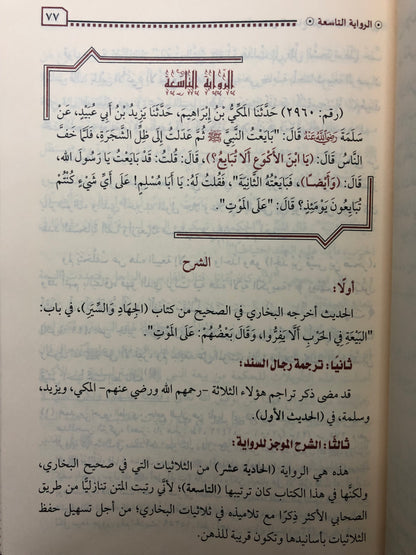 الرواية التاسعة
٧٧
الرِّوَايَةُ التَّاسِعَةُ
(رقم: ٢٩٦٠) حَدَّثَنَا المَكِّيُّ بْنُ إِبْرَاهِيمَ، حَدَّثَنَا يَزِيدُ بْنُ أَبِي عُبَيْدٍ، عَنْ
سَلَمَةَ رَضِيَ اللهُ عَنْهُ قَالَ: "بَايَعْتُ النَّبِيَّ ﷺ ثُمَّ عَدَلْتُ إِلَى ظِلِّ الشَّجَرَةِ، فَلَمَّا خَفَّ
النَّاسُ قَالَ: (يَا ابْنَ الأَكْوَعِ أَلَا تُبَايِعُ؟)، قَالَ: قُلْتُ: قَدْ بَايَعْتُ يَا رَسُولَ الله،
قَالَ: (وَأَيْضًا)، فَبَايَعْتُهُ الثَّانِيَةَ"، فَقُلْتُ لَهُ: يَا أَبَا مُسْلِمٍ! عَلَى أَيِّ شَيْءٍ كُنْتُمْ
تُبَايِعُونَ يَوْمَئِذٍ؟ قَالَ: "عَلَى المَوْتِ".
الشرح
أولًا:
الحديث أخرجه البخاري في الصحيح من كتاب (الجِهَادِ وَالسِّيَرِ)، في باب:
"البَيْعَةِ فِي الحَرْبِ أَلَّا يَفِرُّوا، وَقَالَ بَعْضُهُمْ: عَلَى المَوْتِ".
ثانيًا: ترجمة رجال السند:
قد مضى ذكر تراجم هؤلاء الثلاثة -رحمهم الله ورضي عنهم- المكي، ويزيد،
وسلمة، في (الحديث الأول).
ثالثًا: الشرح الموجز للرواية:
هذه هي الرواية (الحادية عشر) من الثلاثيات التي في صحيح البخاري،
ولكنَّها في هذا الكتاب كان ترتيبها (التاسعة)؛ لأنَّي رتبت المتن تنازليًّا من طريق
الصحابي الأكثر ذِكرًا مع تلاميذه في ثلاثيات البخاري؛ من أجل تسهيل حفظ
الثلاثيات بأسانيدها وتكون قريبة للذهن.